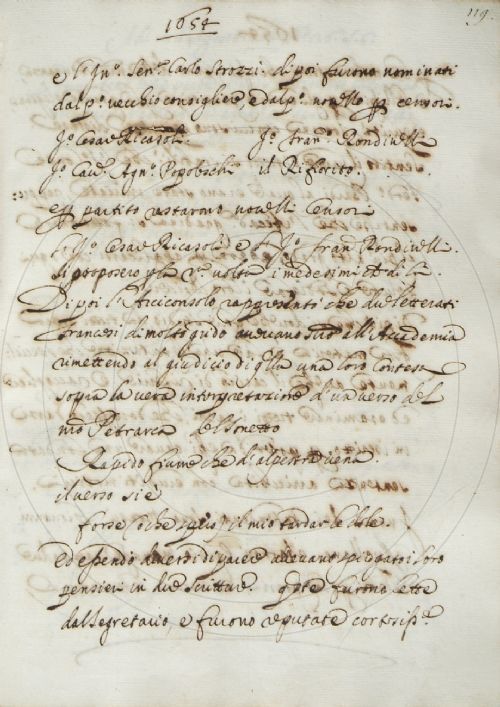 1654
119
e l'Jn.º Sen.º Carlo Strozzi. di poi furono nominati
dal p.º vecchio consigliere, e dal p.º novello p censori.
J.º Cesare Ricasoli. J.º Fran.º Rondinelli
J.º Cav.º Agn.º Popoleschi il Rifiorito.
e p partito restarono novelli Censori
Jº Cesare Ricasoli e Jº fran Rondinelli.
si proposero volta i medesimi
Di poi l'Arciconsolo rappresentò che due letterati
francesi di molto grido avevano scto all'Accademia
rimettendo al giudicio di qlla una loro contesa
sopra la vera interpretazione d'un verso del
nro Petrarca bel sonetto
Rapido fiume che d'alpestre vena.
il verso si è
forse (o che spero) il mio tardar le dole.
ed essendo diversi di parere avevano spiegato i loro
pensieri in due scritture. qste furono lette
dal segretario, e furono reputate cortesiss.e